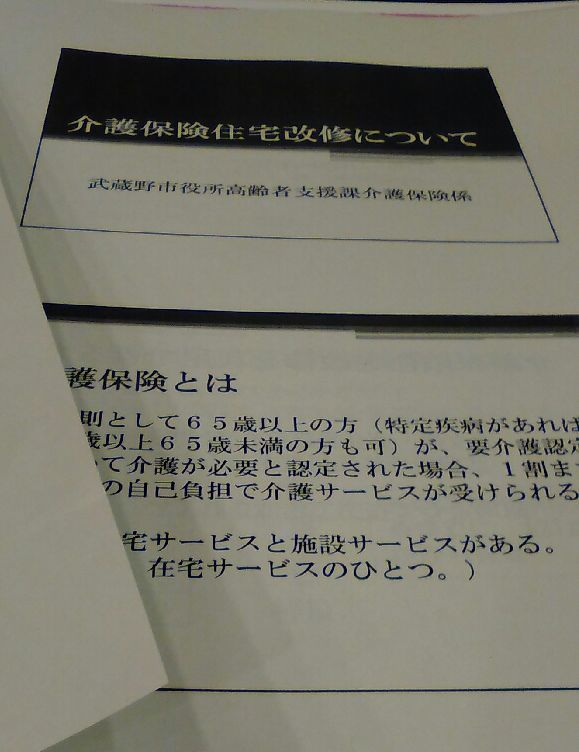 介護保険住宅改修について
武蔵野市役所高齢者支援課介護保険係
護保険とは
則として６５歳以上の方（特定疾病があれば
歳以上６５歳未満の方も可）が、要介護認定
て介護が必要と認定された場合、１割ま
の自己負担で介護サービスが受けられる
宅サービスと施設サービスがある。
在宅サービスのひとつ。）